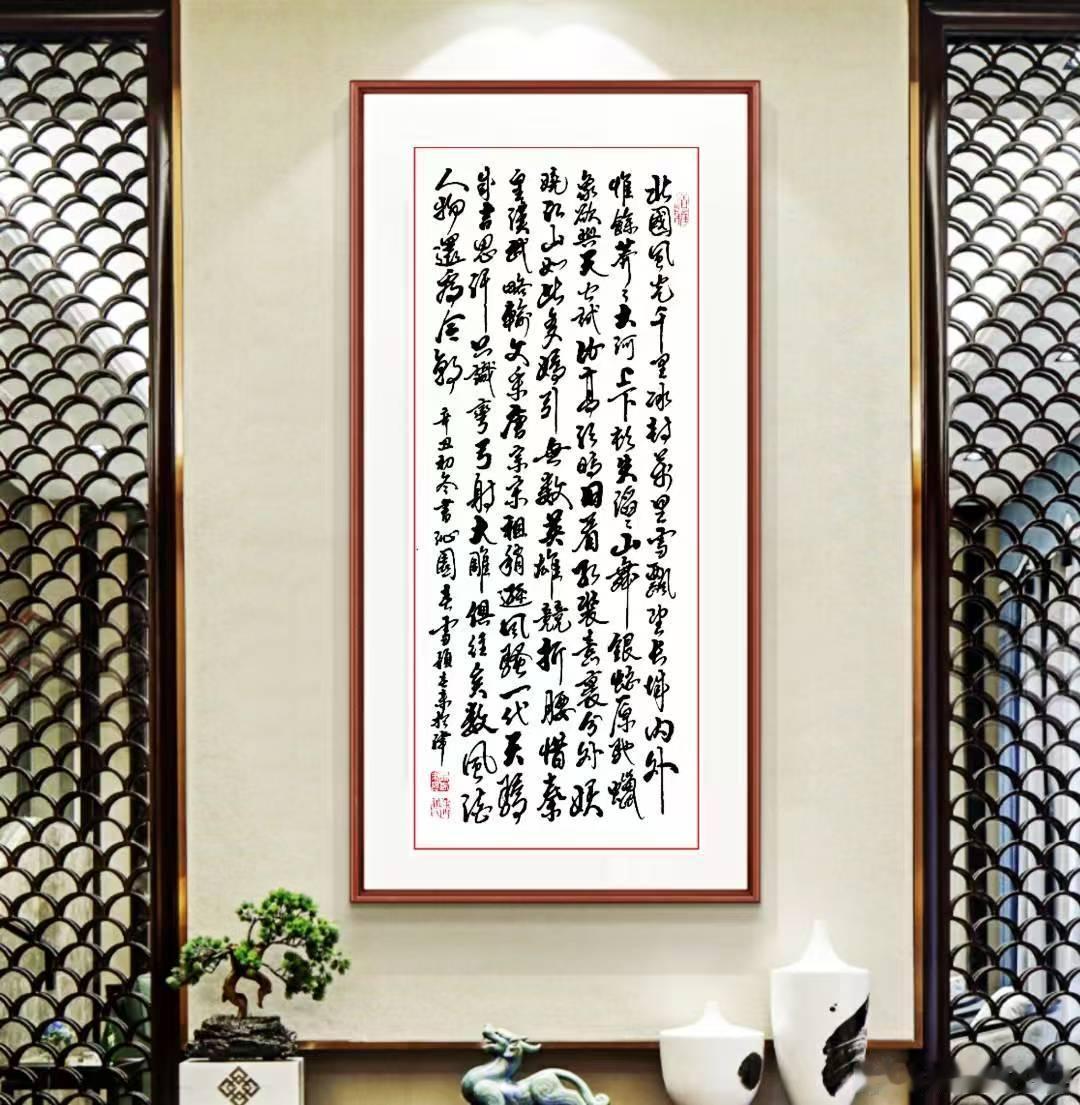 北國風光千里冰封萬里雪飄望長城内外
惟餘莽々大河上下頓失滔々山舞銀蛇原馳蠟
象欲與天公試比高須晴日看紅裝素裹分外妖
嬈江山如此多嬌引無數英雄競折腰惜秦
皇漢武略輸文采唐宗宋祖稍遜風騷一代天驕
成吉思汗只識彎弓射大雕俱往矣數風流
人物還看今朝 辛丑初冬書沁園春雪